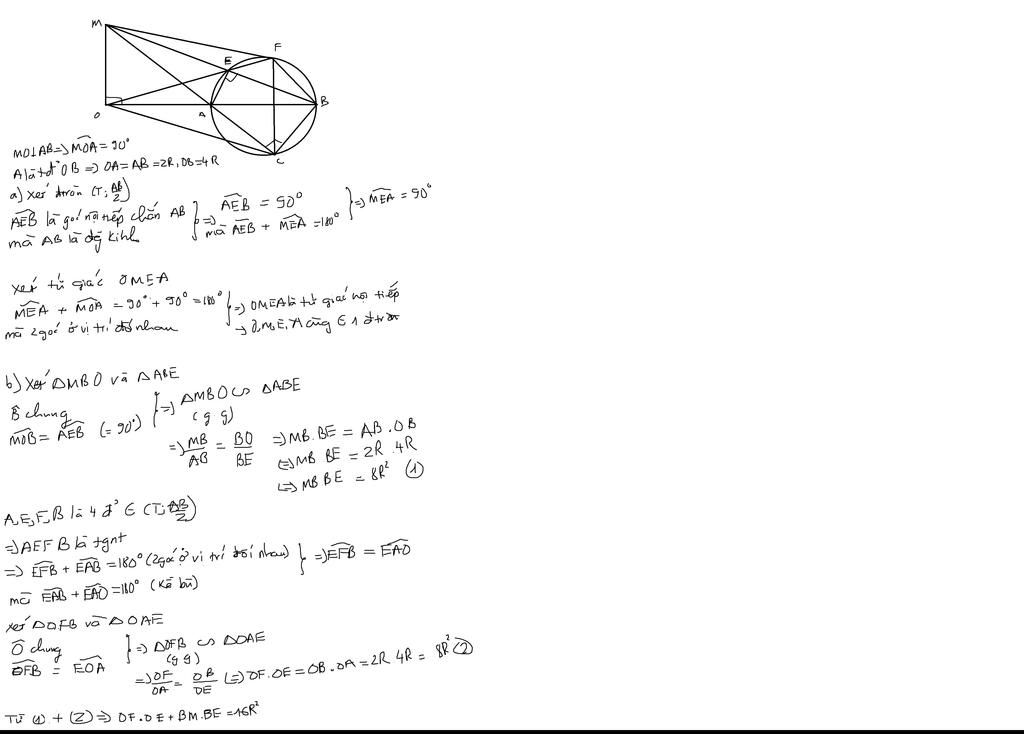 M
F
E
O
A
B
C
MO⊥AB => MOA = 90°
A là tđ OB => OA = AB = 2R, OB = 4R
a) Xét đtròn (T; AB/2)
AEB là góc nội tiếp chắn AB
mà AB là đg kính
=> AEB = 90°
mà AEB + MEA = 180°
=> MEA = 90°
Xét tứ giác OMEA
MEA + MOA = 90° + 90° = 180°
mà 2 góc ở vị trí đối nhau
=> OMEA là tứ giác nội tiếp
=> O, M, E, A cùng ∈ 1 đtròn
b) Xét ΔMBO và ΔABE
B chung
MOB = AEB (= 90°)
=> ΔMBO ∽ ΔABE
(g g)
=> MB/AB = BO/BE => MB.BE = AB.OB
<=> MB BE = 2R.4R
<=> MB BE = 8R² (1)
A, E, F, B là 4 đ' ∈ (T; AB/2)
=> AEFB là tgnt
=> EFB + EAB = 180° (2 góc ở vị trí đối nhau)
mà EAB + EAO = 180° (kề bù)
=> EFB = EAO
Xét ΔOFB và ΔOAE
O chung
OFB = EOA
=> ΔOFB ∽ ΔOAE
(g g)
=> OF/OA = OB/OE <=> OF.OE = OB.OA = 2R 4R = 8R² (2)
Từ (1) + (2) => OF.OE + BM.BE = 16R²